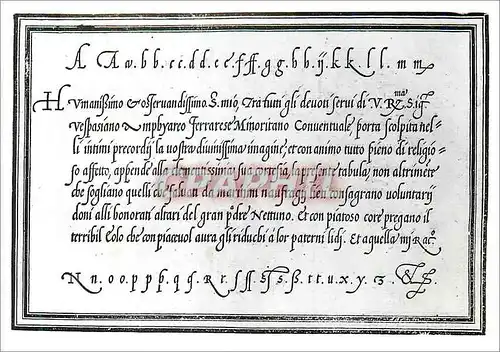 A Aa. b b. c c. d d. e e. f ff. g g. h h. ij. k k. l l. m m
HVmanißimo & osseruandissimo. S. mio, Tra tutti gli deuoti serui di V. R.ma Sig.
Vespasiano Amphyareo Ferrarese Minoritano Conuentuale, porta scolpita nel-
li intimi precordij la uostra diuinissima imagine, et con animo tutto pieno di religio-
so affetto, appende alla clementissima sua la presente tabula, non altrimete
che sogliano quelli che saluati da naufragij, ben consagrano voluntarij
doni alli honorati altari del gran pdre Nettuno. Et con piatoso core pregano il
terribil Eolo che con piaceuol aura gli riduchi a lor paterni lidj. Et a quella mi Rac.
N n. o o. p p p. q q. R r. ſ ſſ. s s. ß. t t. u. x. y. z